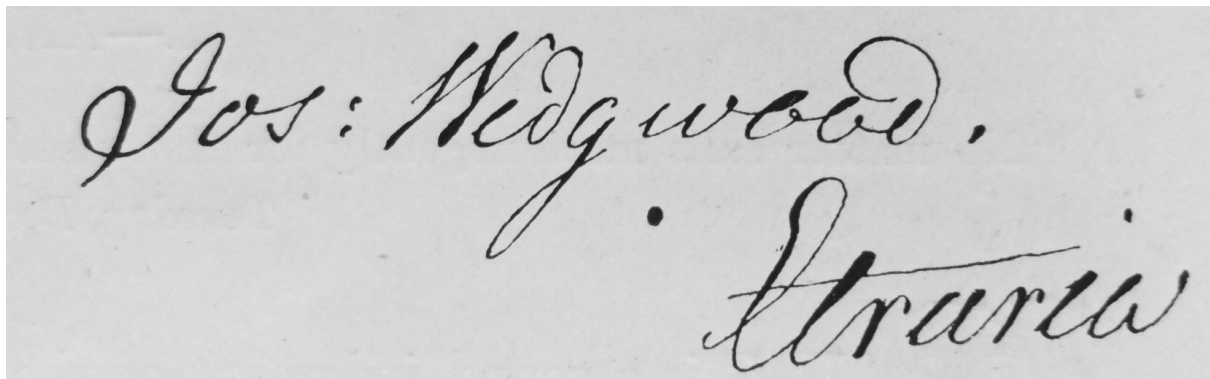 Jos: Wedgwood.
Etruria